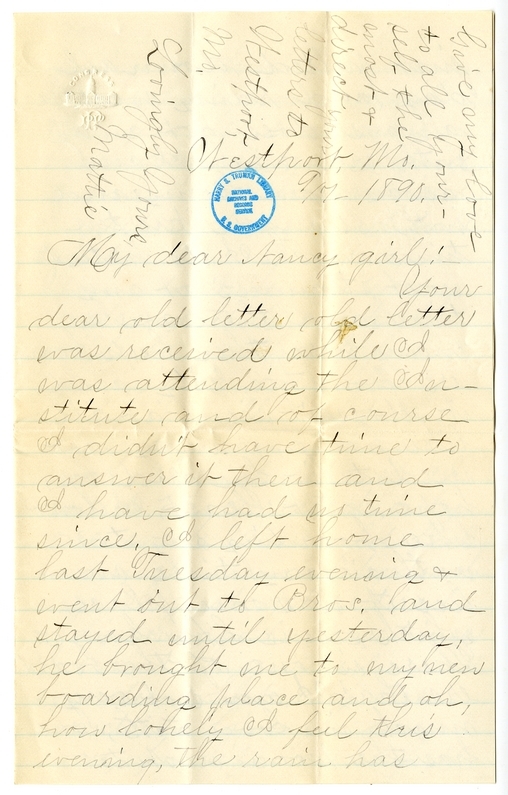 Give my love
to all your-
self the
most &
direct
letters to
Westport,
Mo.
Lovingly Yours
Mattie
HARRY S. TRUMAN LIBRARY
NATIONAL
ARCHIVES AND
RECORDS
SERVICE
U. S. GOVERNMENT
Westport, Mo.
9/7 - 1890.
My dear Nancy girl!-
Your
dear old letter old letter
was received while I
was attending the In-
stitute and of course
I didn't have time to
answer it then and
I have had no time
since. I left home
last Tuesday evening &
went out to Bros. and
stayed until yesterday,
he brought me to my new
boarding place and oh,
how lonely I feel this
evening, the rain has